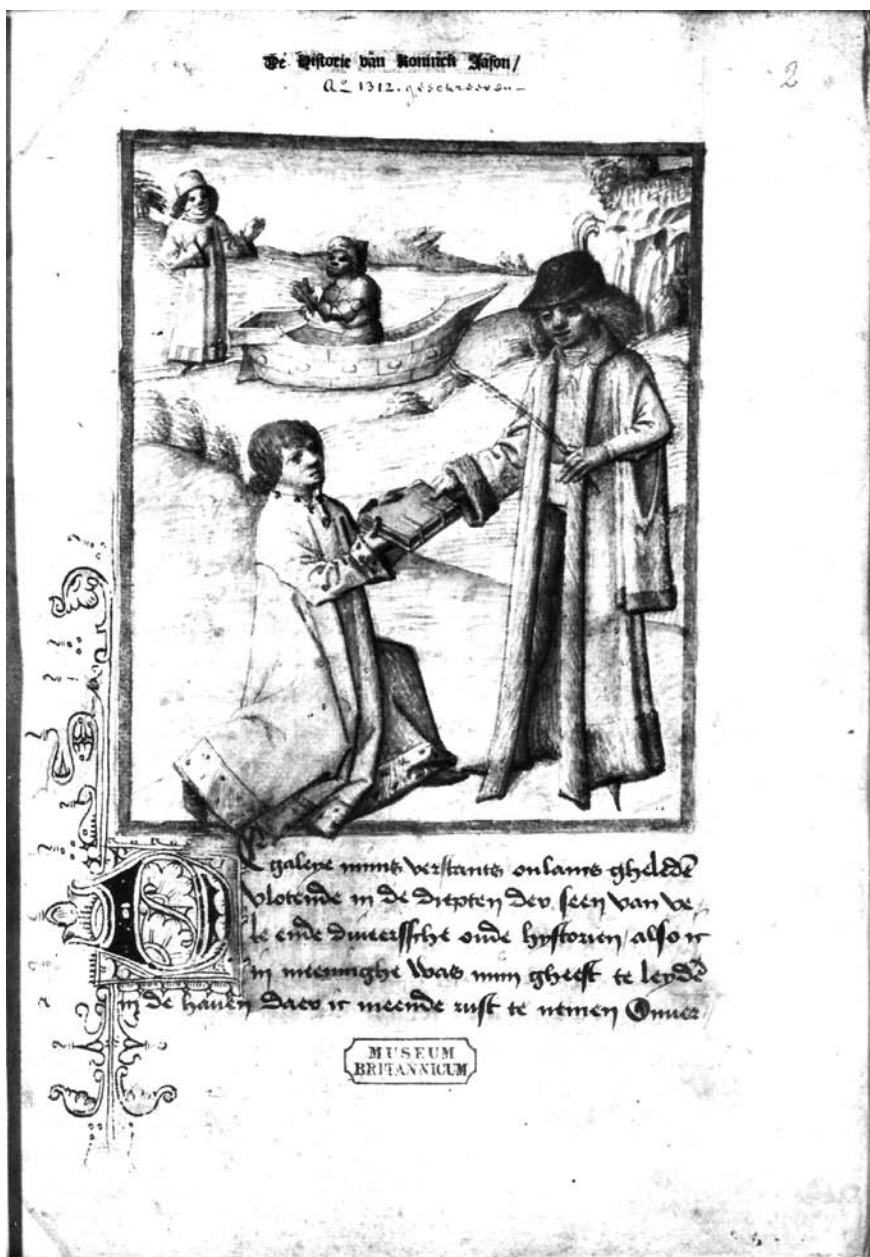 De Historie van Koninck Jason/
Ao 1312. geschreven
2
De galeye mijns verstants onlancs gheledē
vlotende in de diepten der seen van ve
le ende diveerssche oude hystorien also ic
in meeninghe was mijn gheest te leydē
in de haven daer ic meende rust te nemen Onver
MUSEUM
BRITANNICUM